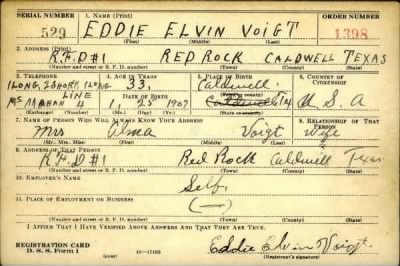 SERIAL NUMBER 1. NAME (Print) ORDER NUMBER
529 EDDIE ELVIN VOIGT 1398
(First) (Middle) (Last)
2. ADDRESS (Print)
R.F.D #1 RED ROCK CALDWELL TEXAS
(Number and street or R. F. D. number) (Town) (County) (State)
3. TELEPHONE 4. AGE IN YEARS 5. PLACE OF BIRTH 6. COUNTRY OF CITIZENSHIP
1 LONG, 2 SHORT 1 LONG 33. Caldwell
LINE DATE OF BIRTH Caldwell
McMAHAN 4 1, 25 1907 U S A
7. NAME OF PERSON WHO WILL ALWAYS KNOW YOUR ADDRESS 8. RELATIONSHIP OF THAT PERSON
Mrs Alma Voigt Wife
(Mr., Mrs., Miss) (First) (Middle) (Last)
9. ADDRESS OF THAT PERSON
R.F.D #1 Red Rock Caldwell Texas
(Number and street or R. F. D. number) (Town) (County) (State)
10. EMPLOYER'S NAME
Self
11. PLACE OF EMPLOYMENT OR BUSINESS
(—)
(Number and street or R. F. D. number) (Town) (County) (State)
I AFFIRM THAT I HAVE VERIFIED ABOVE ANSWERS AND THAT THEY ARE TRUE.
REGISTRATION CARD
D. S. S. Form 1 16—17105 Eddie Elvin Voigt
(Registrant's signature)